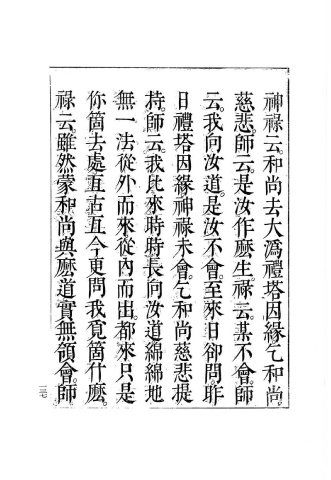 神祿云。和尚去大潙禮塔因緣乞和尚
慈悲。師云。是汝作麽生。祿云。某不會。師
云。我向汝道。是汝不會。至來日却問。昨
日禮塔因緣神祿未會。乞和尚慈悲提
持。師云。我比來時時長向汝道。綿綿地
無一法從外而來。從內而出。都來只是
你箇去處。亙古亙今。更問我覓箇什麽。
祿云。雖然蒙和尚與麽道。實無領會。師
三七